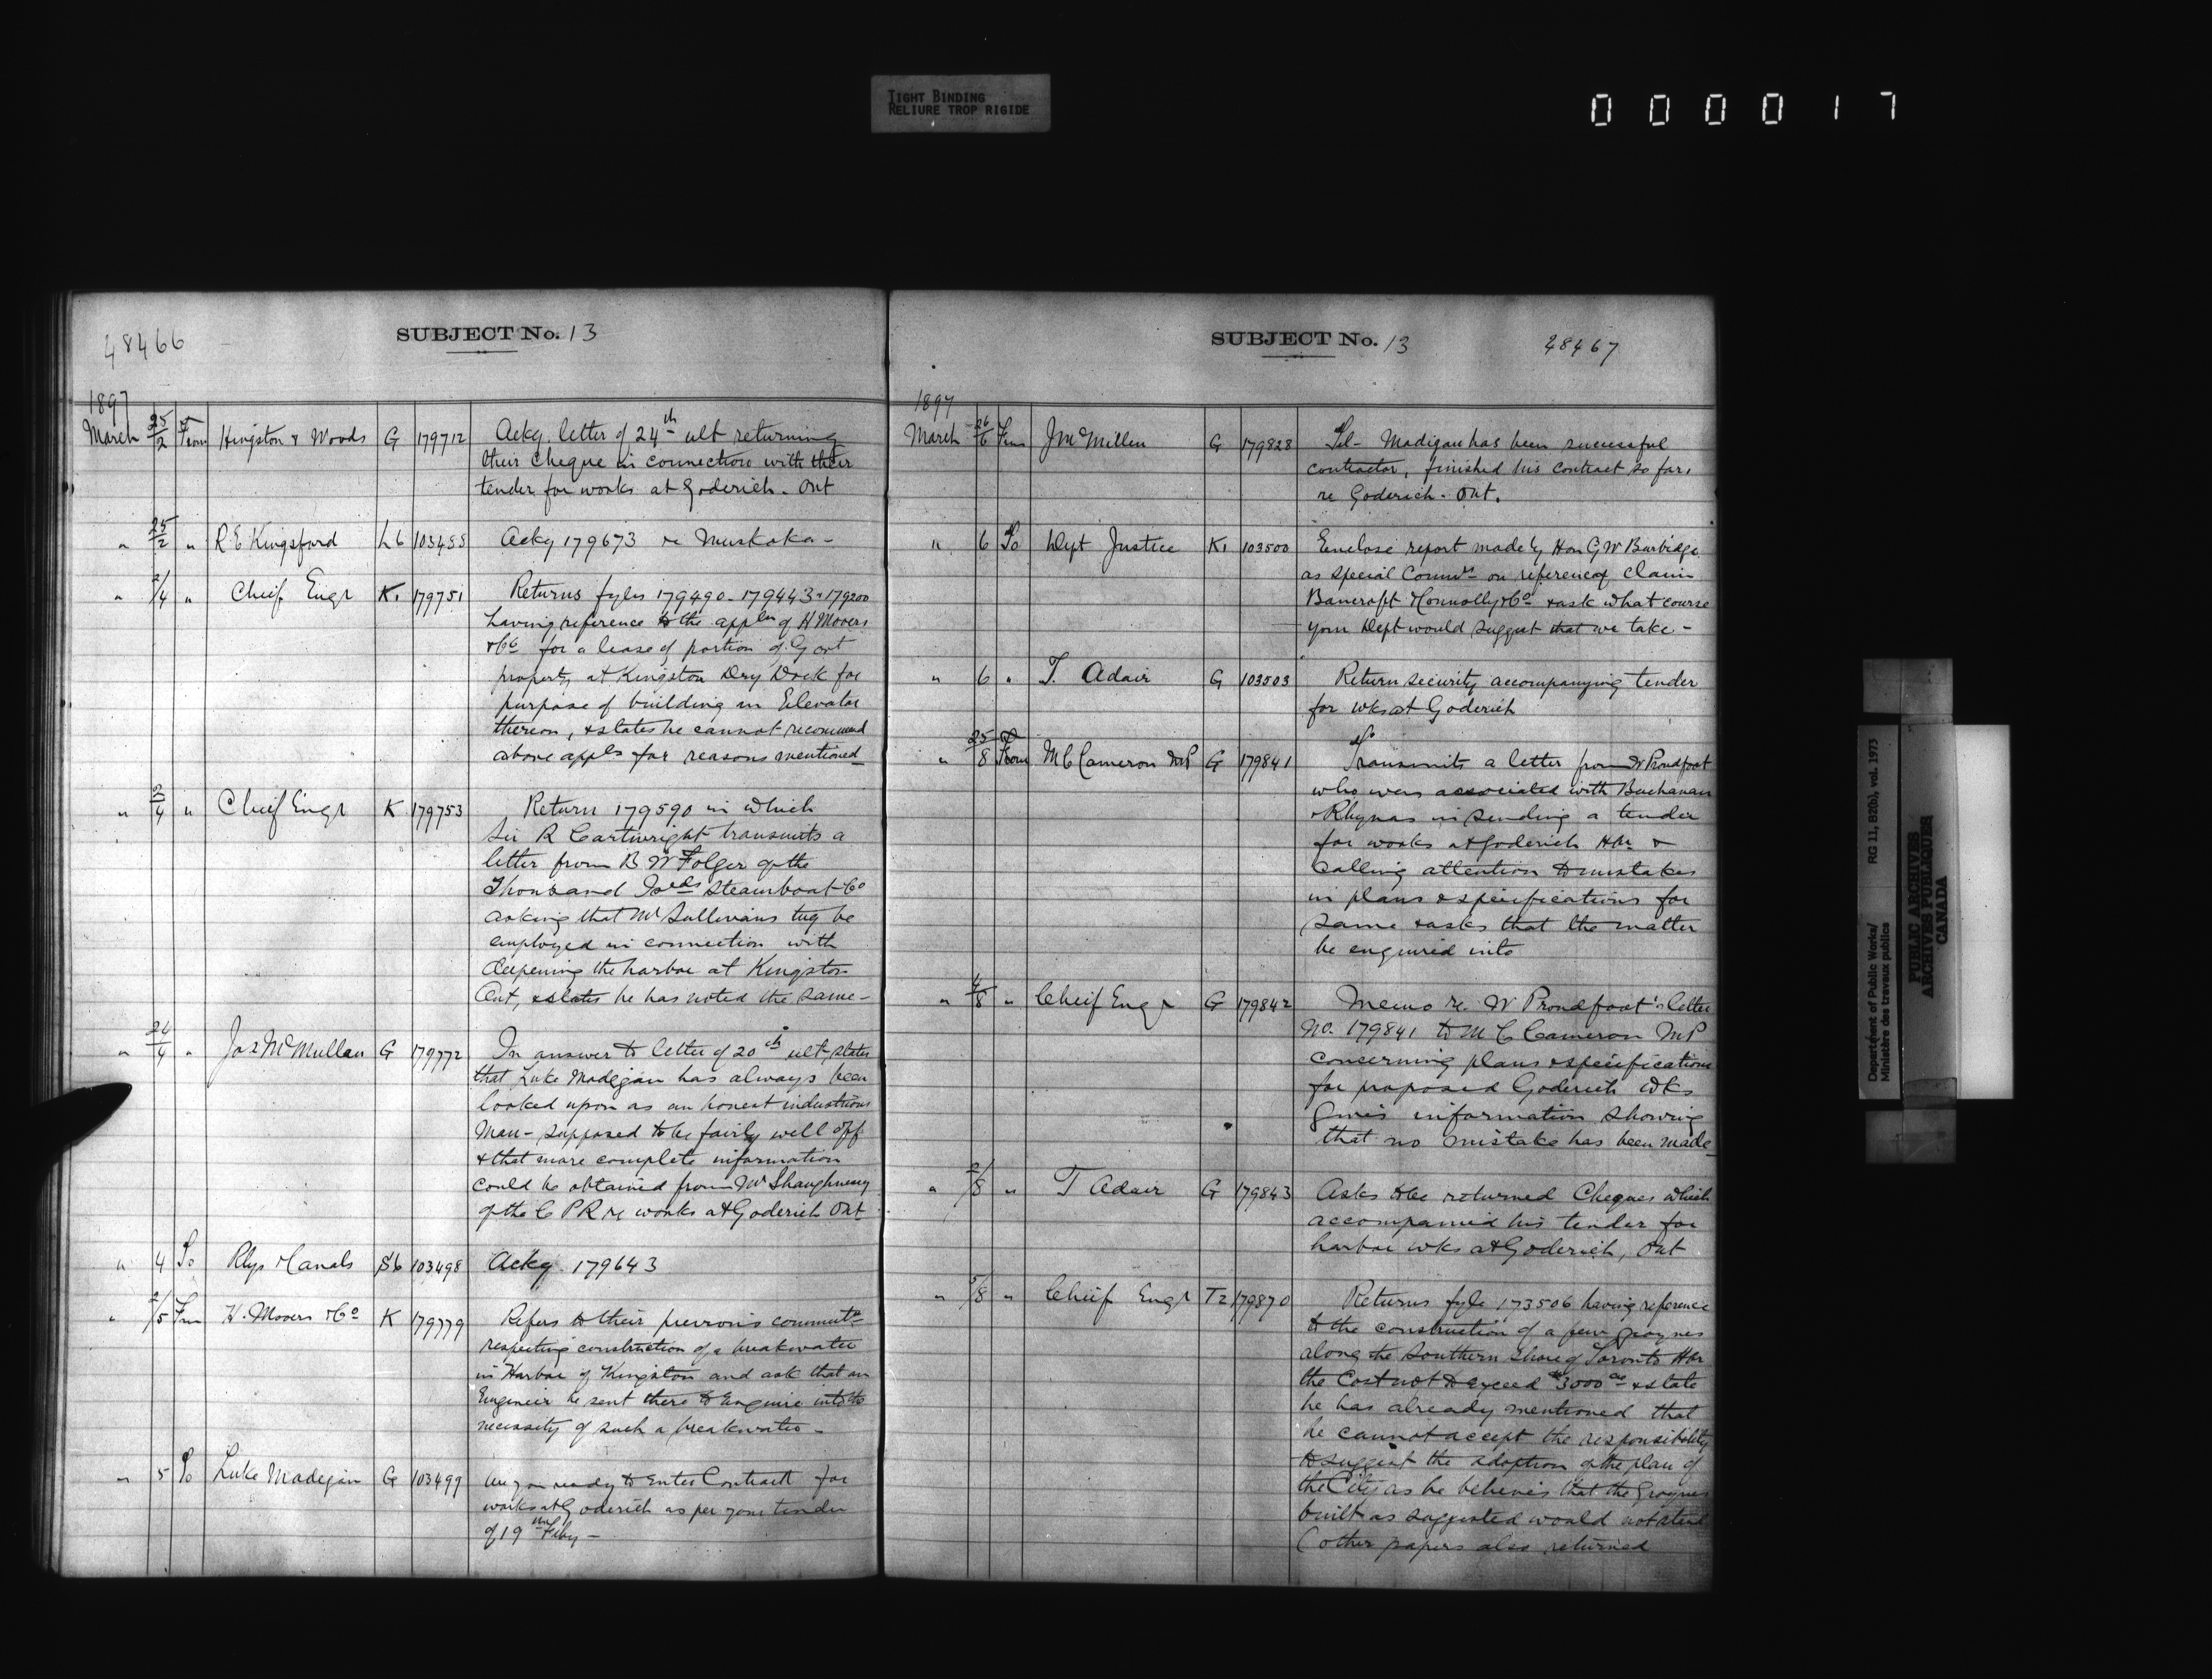 TIGHT BINDING
RELIURE TROP RIGIDE
000017
48466
SUBJECT No. 13
1897
March 25/2 From Kingston & Woods G 179712 Ackg. letter of 24th ult returning
their cheque in connection with their
tender for works at Goderich - Ont
" 25/2 " R E Kingsford L6 Ackg 179673 re Muskoka -
" 2/4 " Chief Engr K1 179751 Returns fyles 179490 - 179443 - 179200
having reference to the appln of H Mooers
& Co for a lease of portion of Govt
property at Kingston Dry Dock for
purpose of building an Elevator
thereon, & states he cannot recommend
above appln for reasons mentioned
" 2/4 " Chief Engr K 179753 Return 179590 in which
Sir R Cartwright transmits a
letter from B W Folger of the
Thousand Islds Steamboat Co
asking that Mr Sullivans tug be
employed in connection with
deepening the harbor at Kingston
Ont, & states he has noted the same -
" 24/4 " Jas McMullan G 179772 In answer to letter of 20th ult, states
that Luke Madigan has always been
looked upon as an honest industrious
Man - supposed to be fairly well off
& that more complete information
could be obtained from Mr Shaughnessy
of the C P R re works at Goderich Ont
" 4 To Rlys & Canals S6 103498 Ackg 179643
" 2/5 Frm H. Mooers & Co K 179779 Refers to their previous commnt
respecting construction of a breakwater
in Harbor of Kingston and ask that an
Engineer be sent there to Enquire into the
necessity of such a breakwater -
" 5 To Luke Madigan G 103499 Are you ready to Enter Contract for
works at Goderich as per your tender
of 19 Feby -
SUBJECT No. 13
48467
1897
March 26/6 From J McMillen G 179828 Tel - Madigan has been successful
contractor, finished his contract so far,
re Goderich - Ont.
" 6 To Dept Justice K1 103500 Enclose report made by Hon G W Burbidge
as special Commr on reference of claim
Bancroft Connolly & Co & ask what course
your Dept would suggest that we take -
" 6 " T. Adair G 103503 Return security accompanying tender
for wks at Goderich
" 25/8 From M C Cameron MP G 179841 Transmits a letter from W Proudfoot
who were associated with Buchanan
& Rhynas in sending a tender
for works at Goderich Hbr &
calling attention to mistakes
in plans & specifications for
same & asks that the matter
be enquired into
" 4/8 " Chief Engr G 179842 Memo re. W Proudfoot's letter
No. 179841 to M C Cameron MP
concerning plans & specifications
for proposed Goderich wks
Gives information showing
that no mistake has been made
" 2/8 " T Adair G 179843 Asks to be returned Cheques which
accompanied his tender for
harbor wks at Goderich, Ont
" 5/8 " Chief Engr T2 179870 Returns fyle 173506 having reference
to the construction of a few groynes
along the Southern shore of Toronto Hbr
the Cost not to exceed $3000 & state
he has already mentioned that
he cannot accept the responsibility
to suggest the adoption of the plan of
the City as he believes that the Groynes
built as suggested would not stand
(other papers also returned
Department of Public Works/
Ministère des travaux publics
RG 11, B2(b), vol. 1973
PUBLIC ARCHIVES
ARCHIVES PUBLIQUES
CANADA